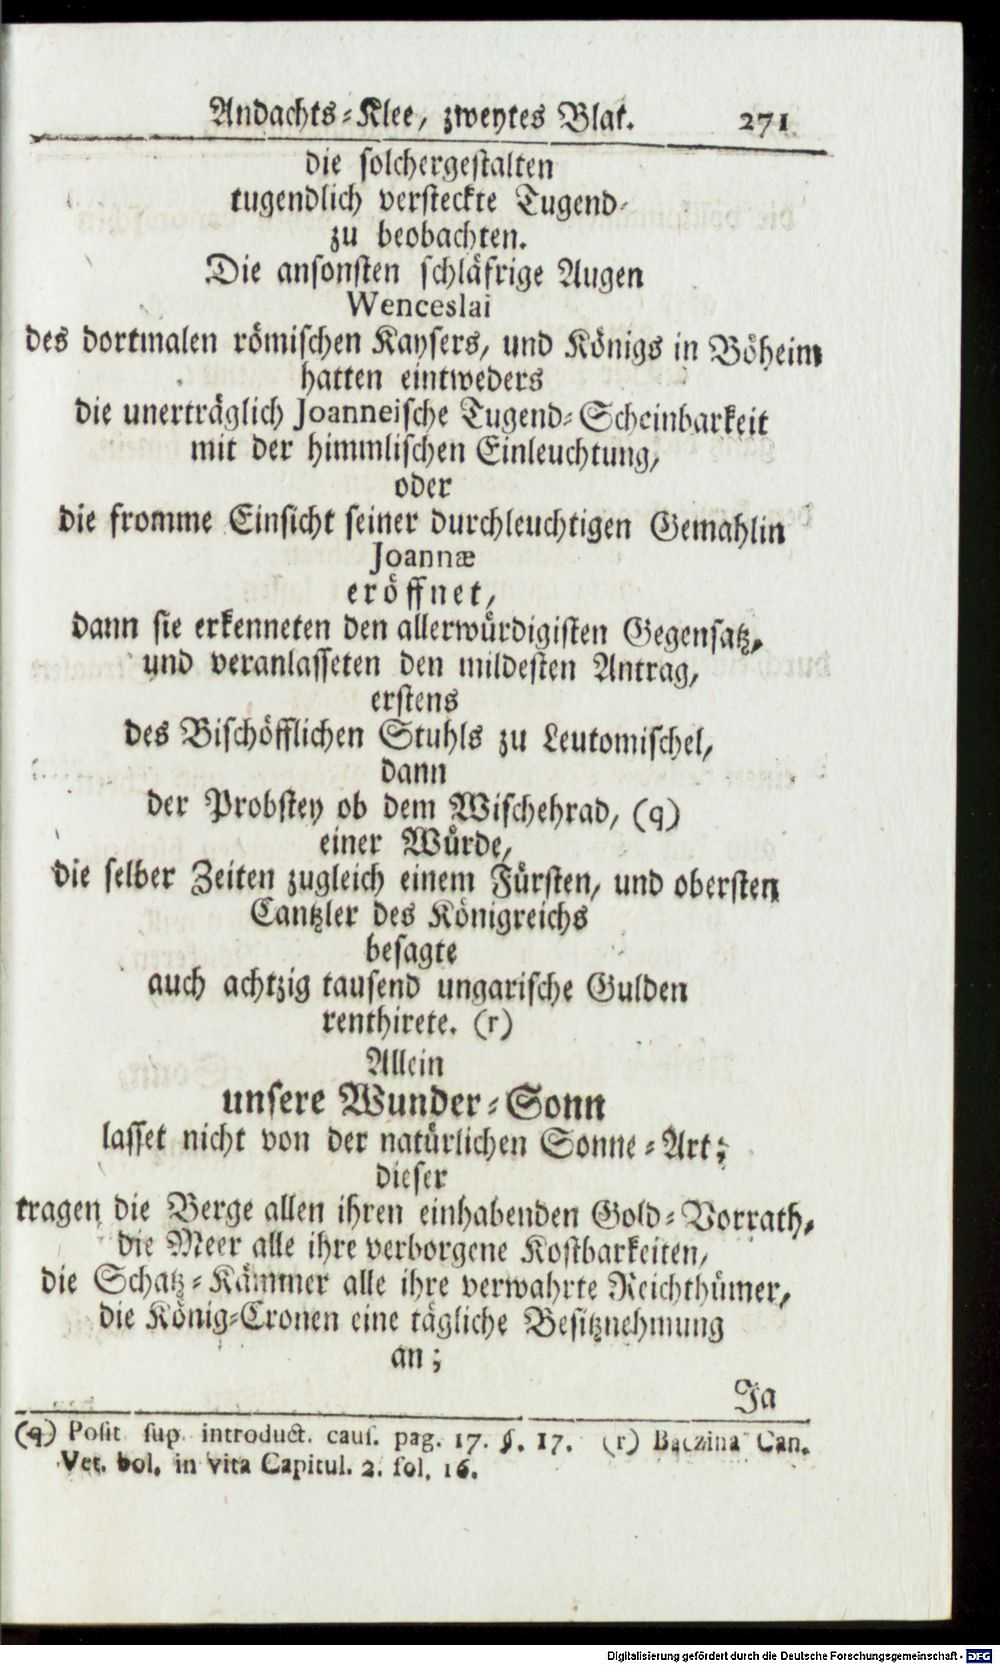 Andachts-Klee, zweytes Blat. 271
die solchergestalten
tugendlich versteckte Tugend
zu beobachten.
Die ansonsten schläfrige Augen
Wenceslai
des dortmalen römischen Kaysers, und Königs in Böheim
hatten eintweders
die unerträglich Joanneische Tugend-Scheinbarkeit
mit der himmlischen Einleuchtung,
oder
die fromme Einsicht seiner durchleuchtigen Gemahlin
Joannæ
eröffnet,
dann sie erkenneten den allerwürdigisten Gegensatz,
und veranlasseten den mildesten Antrag,
erstens
des Bischöfflichen Stuhls zu Leutomischel,
dann
der Probstey ob dem Wischehrad, (q)
einer Würde,
die selber Zeiten zugleich einem Fürsten, und obersten
Cantzler des Königreichs
besagte
auch achtzig tausend ungarische Gulden
renthirete. (r)
Allein
unsere Wunder-Sonn
lasset nicht von der natürlichen Sonne-Art;
dieser
tragen die Berge allen ihren einhabenden Gold-Vorrath,
die Meer alle ihre verborgene Kostbarkeiten,
die Schatz-Kämmer alle ihre verwahrte Reichthümer,
die König-Cronen eine tägliche Besitznehmung
an;
Ja
(q) Posit sup. introduct. caus. pag. 17. §. 17. (r) Baczina Can.
Vet. bol. in vita Capitul. 2. fol. 16.
Digitalisierung gefördert durch die Deutsche Forschungsgemeinschaft - DFG